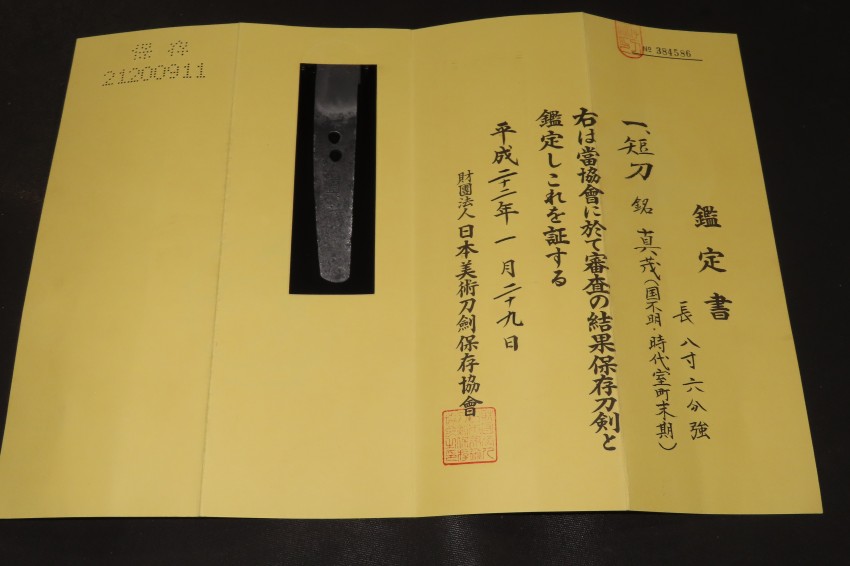 № 384586
鑑定書
一、短刀 銘 真茂(国不明・時代室町末期)
長 八寸六分強
右は當協會に於て審査の結果保存刀剣と
鑑定しこれを証する
平成二十二年一月二十九日
財團法人 日本美術刀劍保存協會
保存
21200911